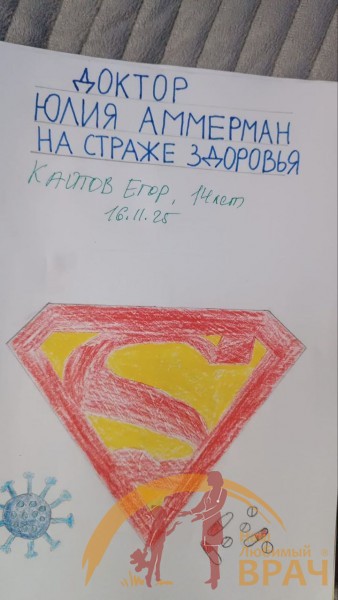 ДОКТОР
ЮЛИЯ АММЕРМАН
НА СТРАЖЕ ЗДОРОВЬЯ
Егор, 14 лет
16.11.25
S
Любимый
ВРАЧ